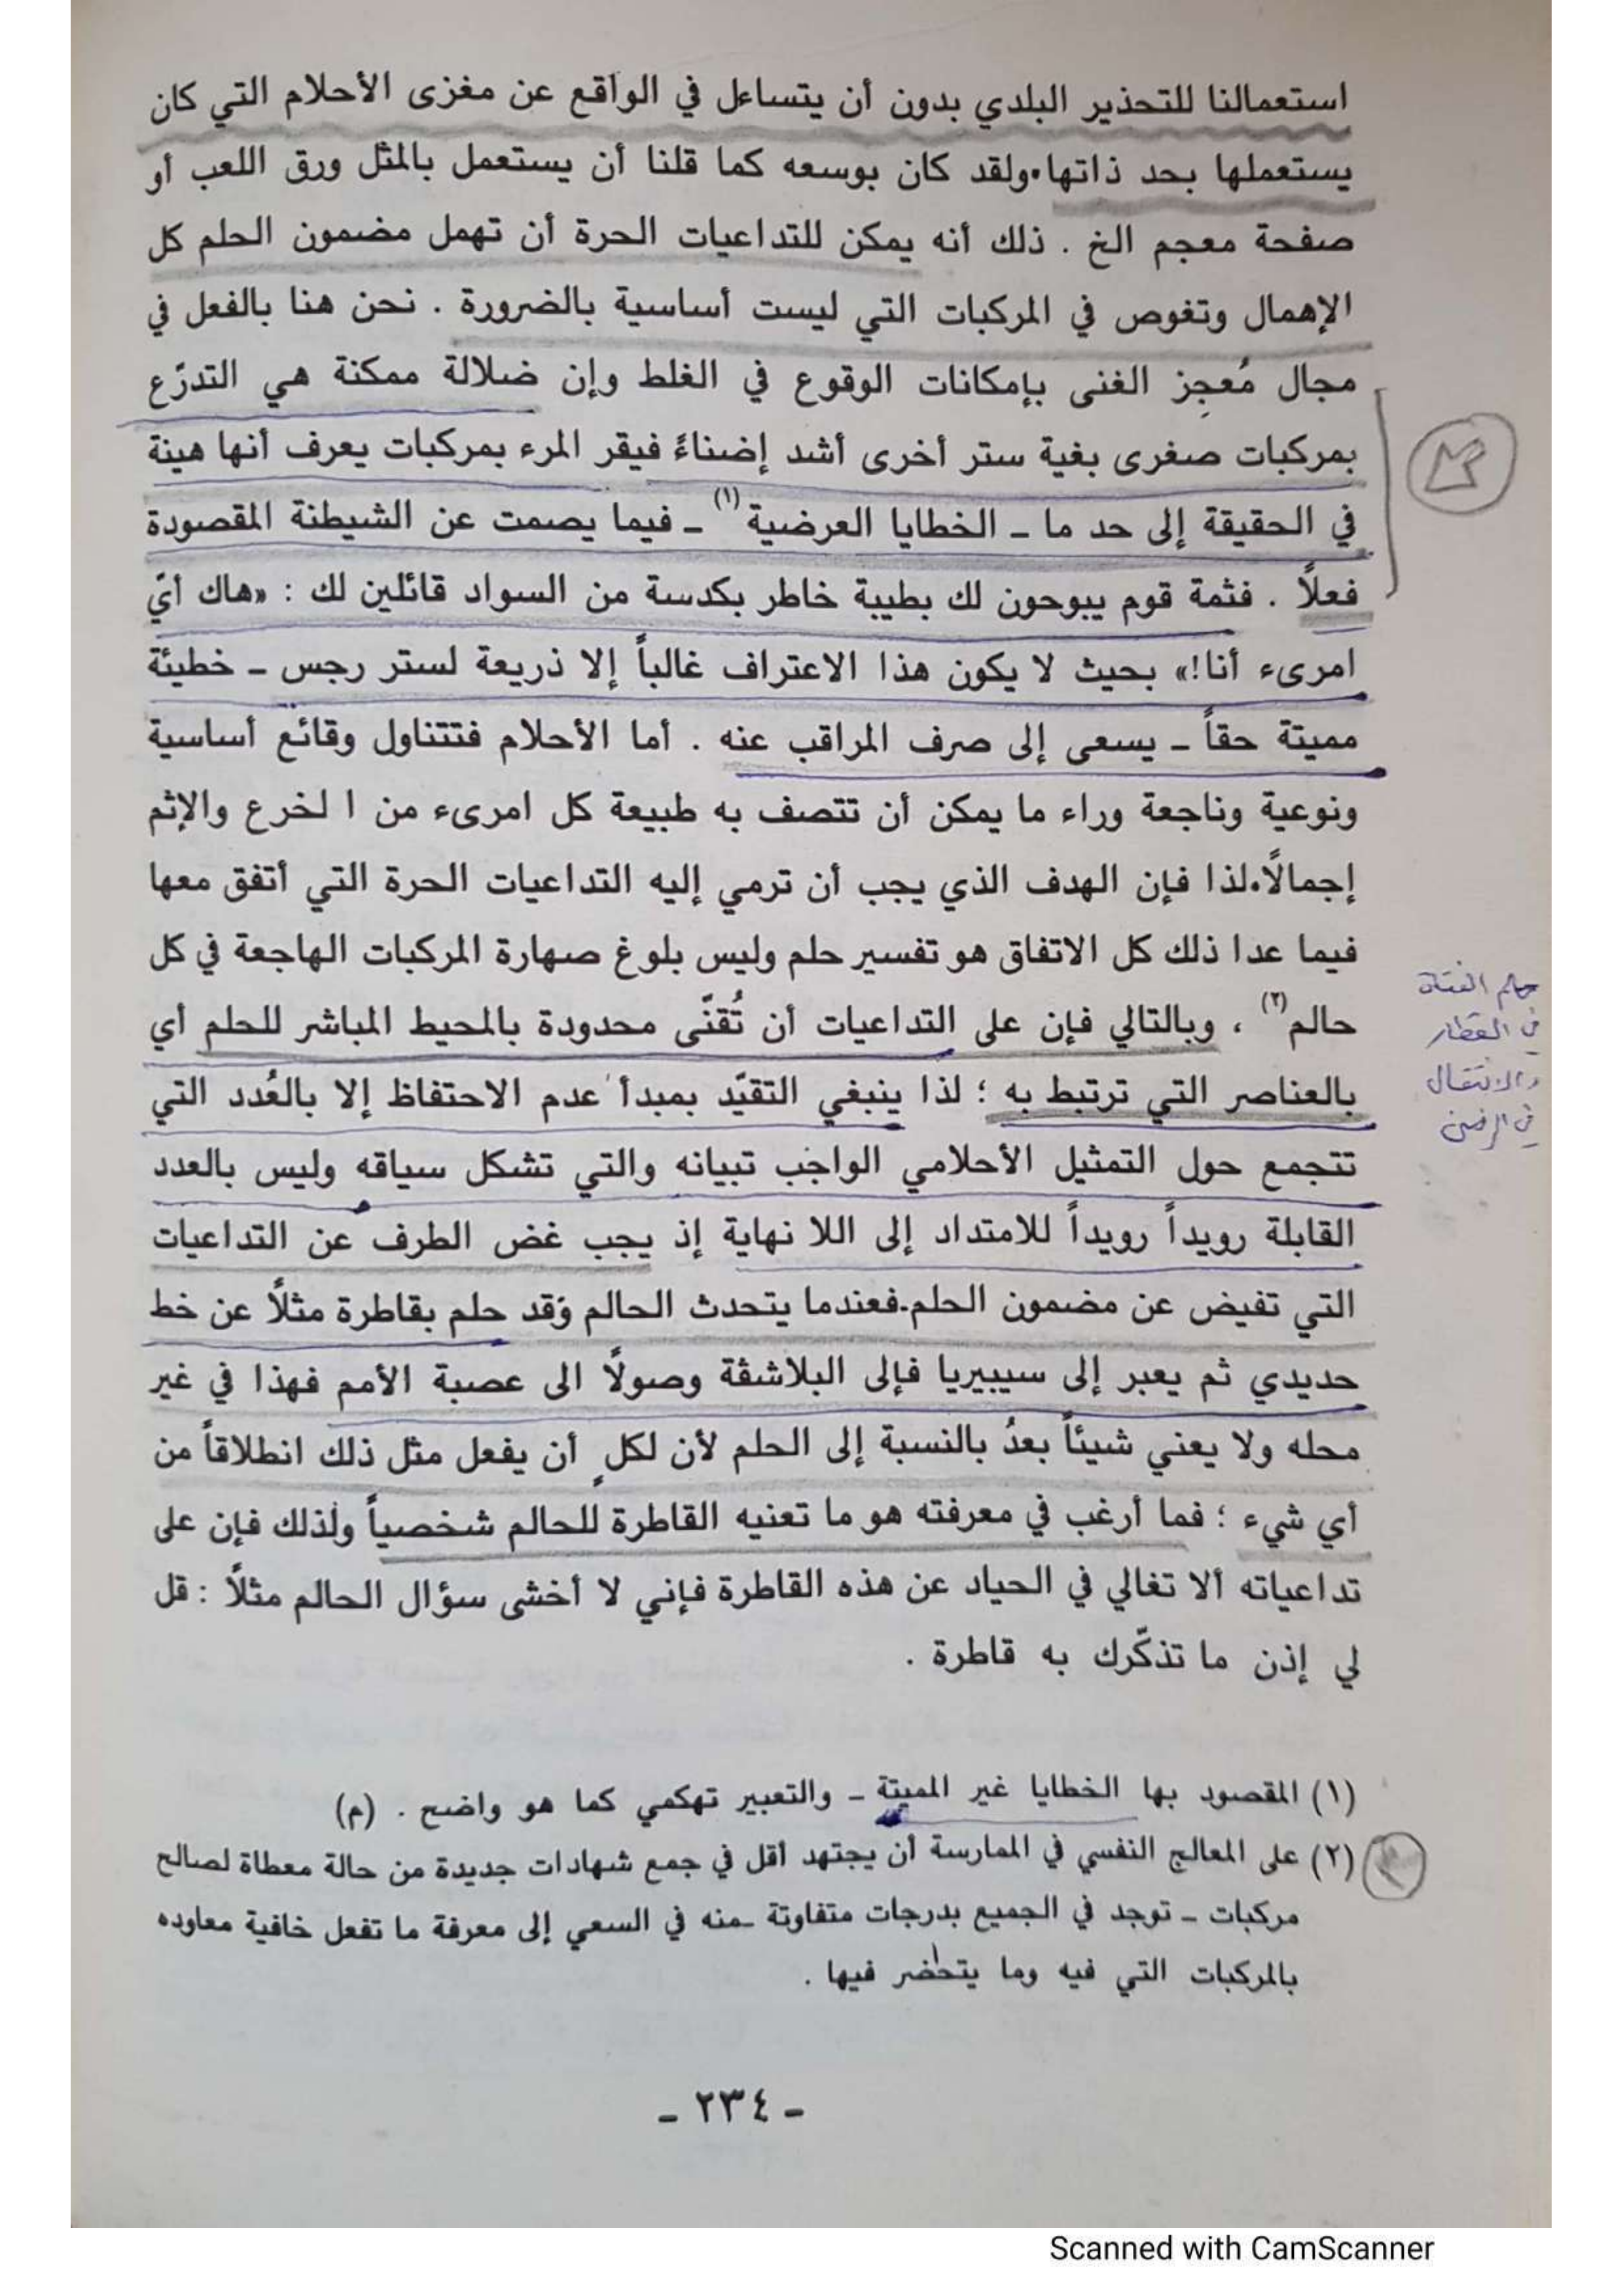 استعمالنا للتحذير البلدي بدون أن يتساءل في الواقع عن مغزى الأحلام التي كان
يستعملها بحد ذاتها.ولقد كان بوسعه كما قلنا أن يستعمل بالمثل ورق اللعب أو
صفحة معجم الخ . ذلك أنه يمكن للتداعيات الحرة أن تهمل مضمون الحلم كل
الإهمال وتغوص في المركبات التي ليست أساسية بالضرورة . نحن هنا بالفعل في
مجال مُعجِز الغنى بإمكانات الوقوع في الغلط وإن ضلالة ممكنة هي التدرّع
بمركبات صغرى بغية ستر أخرى أشد إضناءً فيقر المرء بمركبات يعرف أنها هينة
في الحقيقة إلى حد ما - الخطايا العرضية (١) - فيما يصمت عن الشيطنة المقصودة
فعلاً . فثمة قوم يبوحون لك بطيبة خاطر بكدسة من السواد قائلين لك : «هاك أيّ
امرىء أنا!» بحيث لا يكون هذا الاعتراف غالباً إلا ذريعة لستر رجس - خطيئة
مميتة حقاً - يسعى إلى صرف المراقب عنه . أما الأحلام فتتناول وقائع أساسية
ونوعية وناجعة وراء ما يمكن أن تتصف به طبيعة كل امرىء من ا لخرع والإثم
إجمالاً.لذا فإن الهدف الذي يجب أن ترمي إليه التداعيات الحرة التي أتفق معها
فيما عدا ذلك كل الاتفاق هو تفسير حلم وليس بلوغ صهارة المركبات الهاجعة في كل
حالم (٢) ، وبالتالي فإن على التداعيات أن تُقنّى محدودة بالمحيط المباشر للحلم أي
بالعناصر التي ترتبط به ؛ لذا ينبغي التقيّد بمبدأ عدم الاحتفاظ إلا بالعُدد التي
تتجمع حول التمثيل الأحلامي الواجب تبيانه والتي تشكل سياقه وليس بالعدد
القابلة رويداً رويداً للامتداد إلى اللا نهاية إذ يجب غض الطرف عن التداعيات
التي تفيض عن مضمون الحلم.فعندما يتحدث الحالم وقد حلم بقاطرة مثلاً عن خط
حديدي ثم يعبر إلى سيبيريا فإلى البلاشفة وصولاً الى عصبة الأمم فهذا في غير
محله ولا يعني شيئاً بعدُ بالنسبة إلى الحلم لأن لكلٍ أن يفعل مثل ذلك انطلاقاً من
أي شيء ؛ فما أرغب في معرفته هو ما تعنيه القاطرة للحالم شخصياً ولذلك فإن على
تداعياته ألا تغالي في الحياد عن هذه القاطرة فإني لا أخشى سؤال الحالم مثلاً : قل
لي إذن ما تذكّرك به قاطرة .
حلم الفتاة
في القطار
والانتقال
في الزمن
(١) المقصود بها الخطايا غير المميتة - والتعبير تهكمي كما هو واضح . (م)
(٢) على المعالج النفسي في الممارسة أن يجتهد أقل في جمع شهادات جديدة من حالة معطاة لصالح
مركبات - توجد في الجميع بدرجات متفاوتة -منه في السعي إلى معرفة ما تفعل خافية معاوده
بالمركبات التي فيه وما يتحضر فيها .
- ٢٣٤ -
Scanned with CamScanner